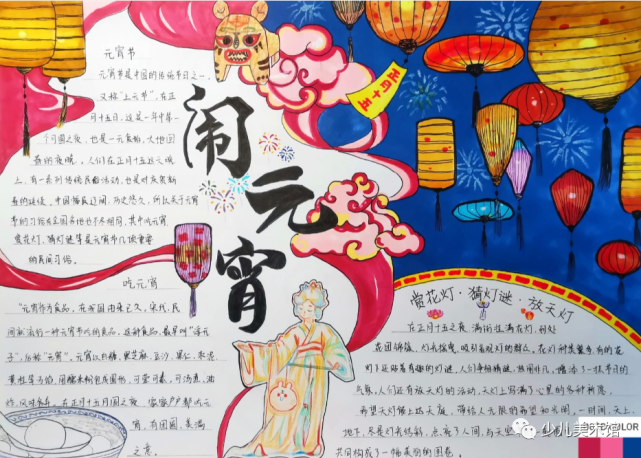 元宵节
元宵节是中国的传统节日之一,
又称"上元节",在正
月十五日,这是一年中第
一个月圆之夜,也是一元复始,大地回
春的夜晚。人们在正月十五这天晚
上,有一系列传统民俗活动,也是对庆贺新
春的延续,中国幅员辽阔,历史悠久,所以关于元宵
节的习俗在全国各地也不尽相同,其中吃元宵
赏花灯、猜灯谜等是元宵节几项重要
的民间习俗。
闹元宵
正月十五
吃元宵
"元宵作为食品,在我国由来已久,宋代,民
间就流行一种元宵节吃的食品,这种食品,最早叫"浮元
子",后称"元宵",元宵以白糖、黑芝麻、豆沙、果仁、枣泥、
黄桂等为馅,用糯米粉包成圆形,可荤可素,可汤煮、油
炸,风味各异。在正月十五月圆之夜,家家户户都吃元
宵,有团圆、美满
之意。
赏花灯·猜灯谜·放天灯
在正月十五之夜,满街挂满花灯,到处
花团锦簇,灯光摇曳,吸引着观灯的群众,花灯种类繁多,有的花
灯下还贴着有趣的灯谜,人们争相猜谜,
点气,人们还有放天灯的活动,天灯上写满了心里的各种祈愿,
希望天灯
地下,尽是灯光
共同构成了一幅美丽的图卷。
少儿美术馆
COLOR